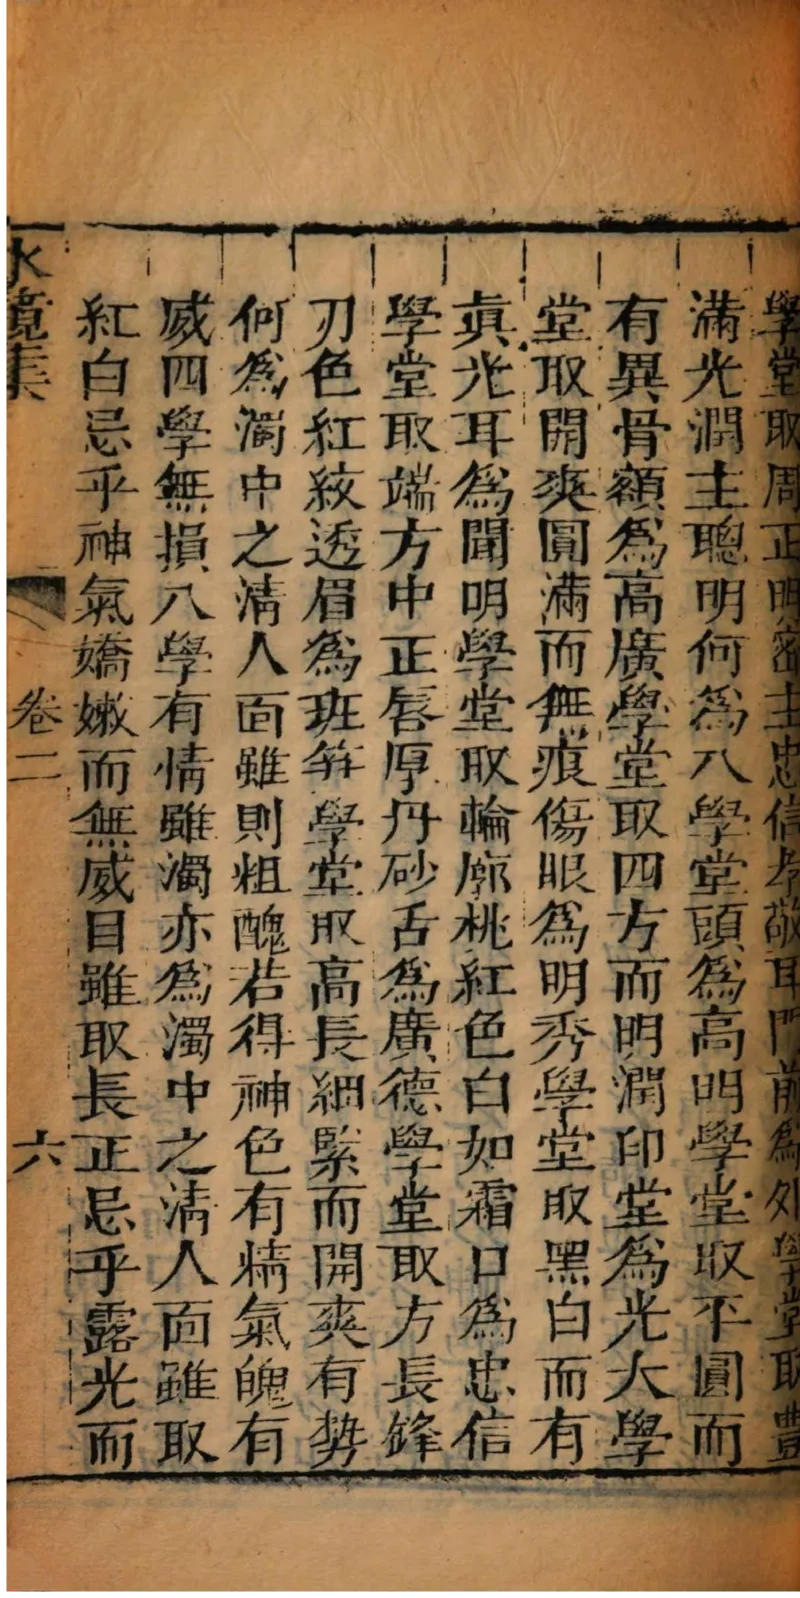 學堂取周正明密主忠信孝敬耳門前為外學堂取豐
滿光潤主聰明何為八學堂頭為高明學堂取平圓而
有異骨額為高廣學堂取四方而明潤印堂為光大學
堂取開爽圓滿而無痕傷眼為明秀學堂取黑白而有
眞光耳為聞明學堂取輪廓桃紅色白如霜口為忠信
學堂取端方中正唇厚丹砂舌為廣德學堂取方長鋒
刃色紅紋透眉為班笋學堂取高長細緊而開爽有勢
何為濁中之清人面雖則粗醜若得神色有精氣魄有
威四學無損八學有情雖濁亦為濁中之清人面雖取
紅白忌乎神氣嬌嫩而無威目雖取長正忌乎露光而
水鏡集
卷二
六